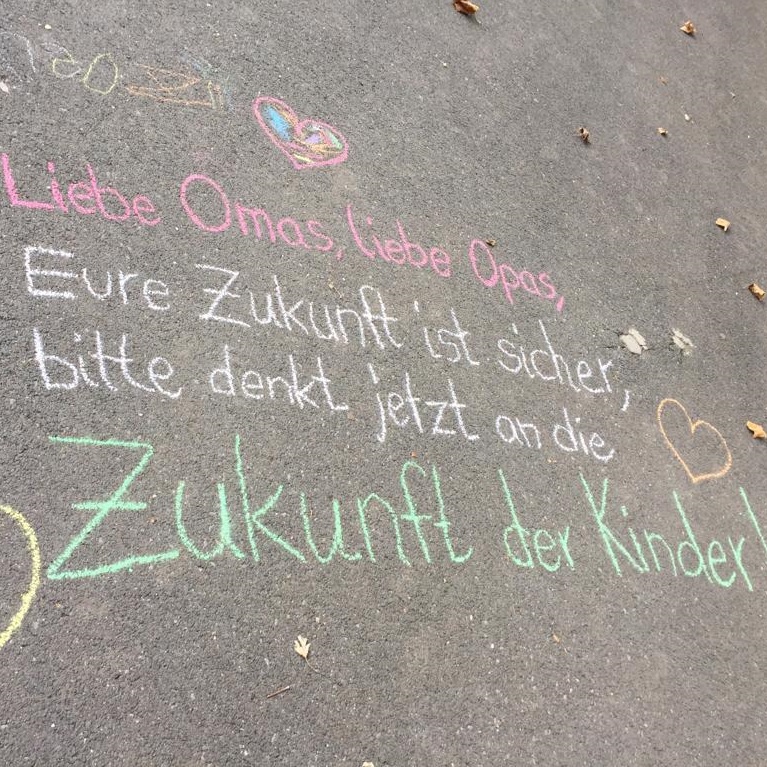 Liebe Omas, liebe Opas,
Eure Zukunft ist sicher,
bitte denkt jetzt an die
Zukunft der Kinder!